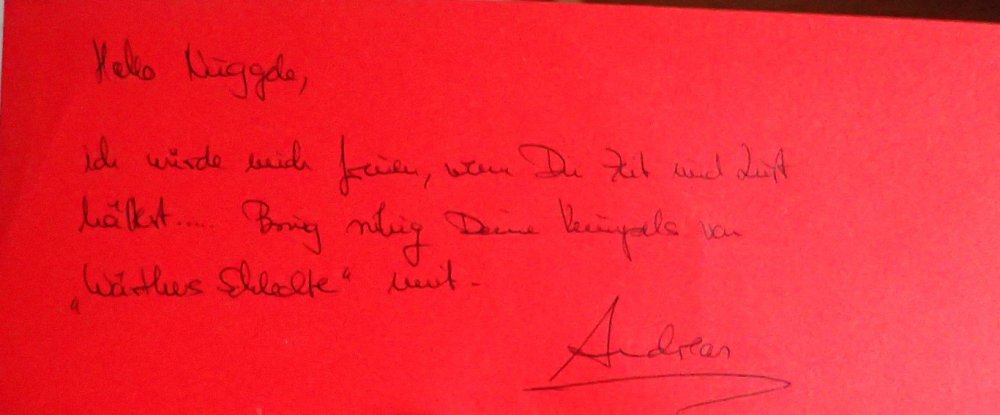 Hallo Nuggde,
ich würde mich freuen, wenn Du Zeit und Lust
hättest..... Bring ruhig Deine Kumpels von
" mit.
Andreas